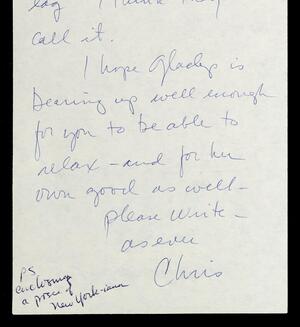 I think they
call it.
I hope Gladys is
bearing up well enough
for you to be able to
relax – and for her
own good as well –
please write –
as ever
Chris
PS
enclosing
a piece of
New York-iana